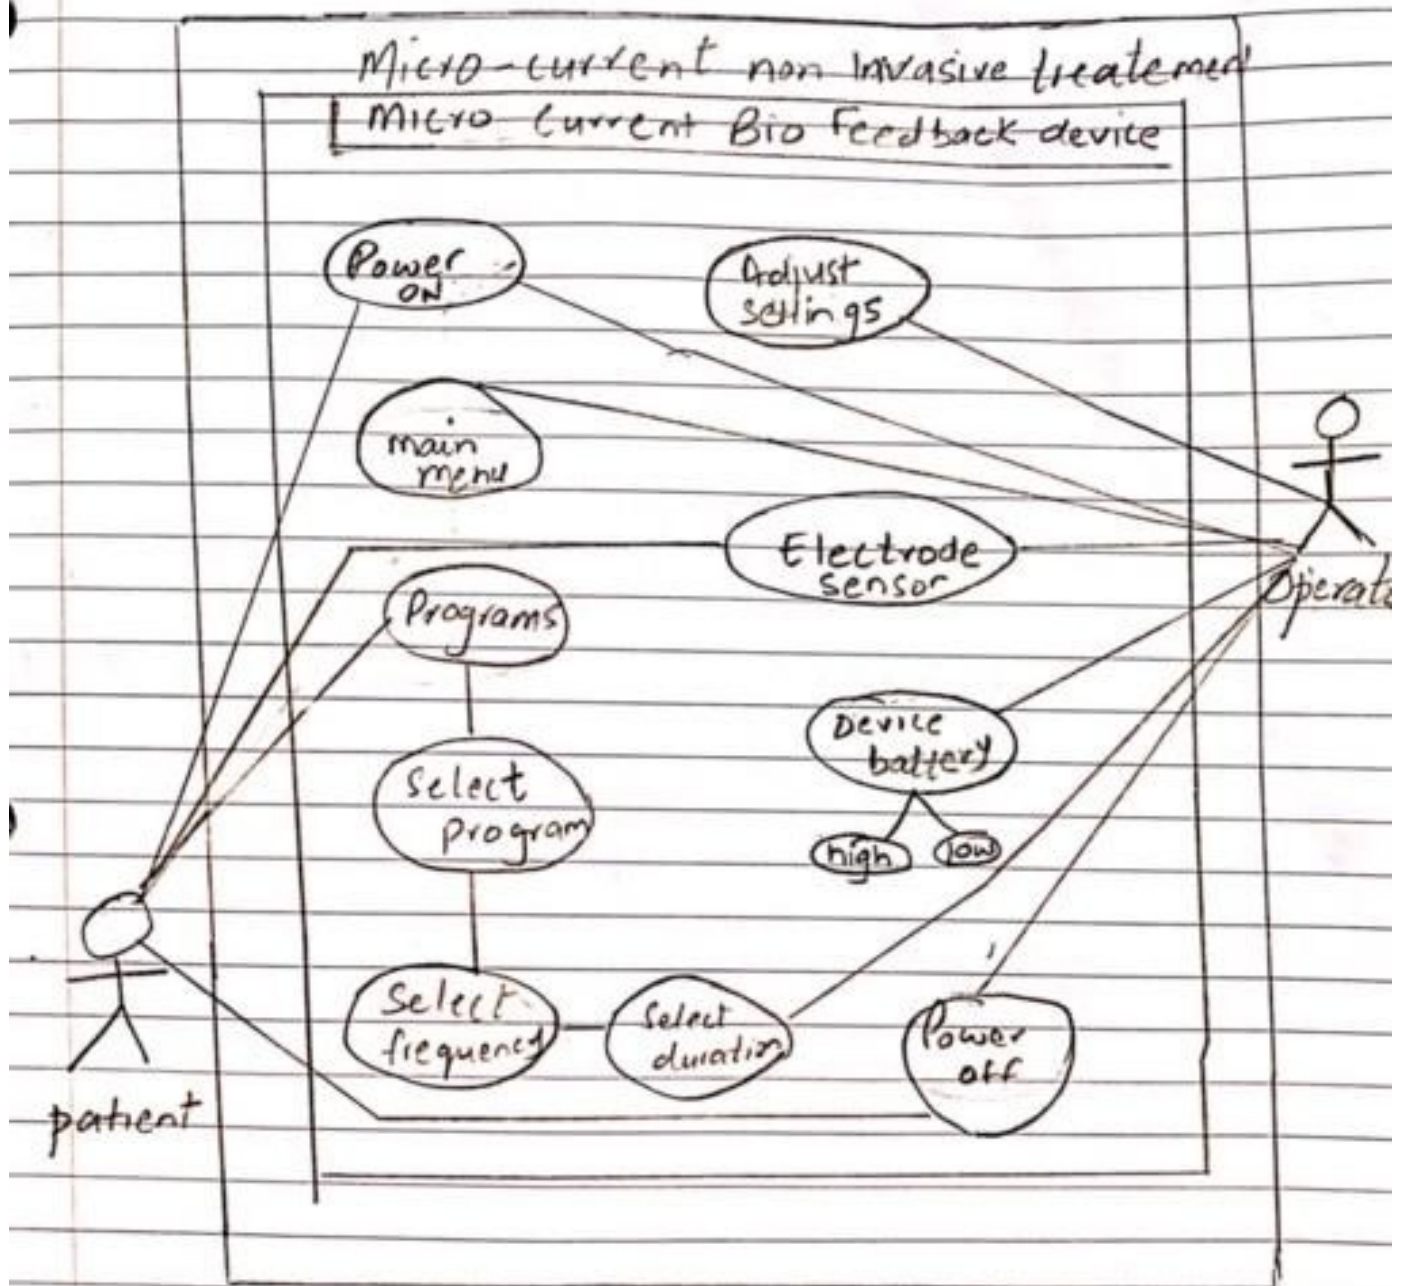 Micro-current non Invasive treatemen
Micro Current Bio Feedback device
Power
ON
Adjust
settings
main
menu
Electrode
sensor
Operato
Programs
Device
battery
Select
program
high
low
Select
frequency
Select
duration
Power
off
patient